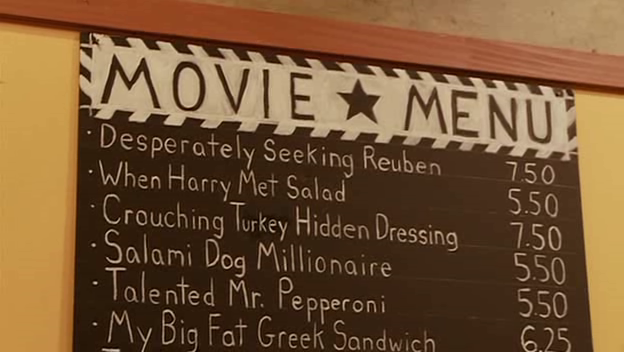 MOVIE ★ MENU
· Desperately Seeking Reuben 7.50
· When Harry Met Salad 5.50
· Crouching Turkey Hidden Dressing 7.50
· Salami Dog Millionaire 5.50
· Talented Mr. Pepperoni 5.50
· My Big Fat Greek Sandwich 6.25